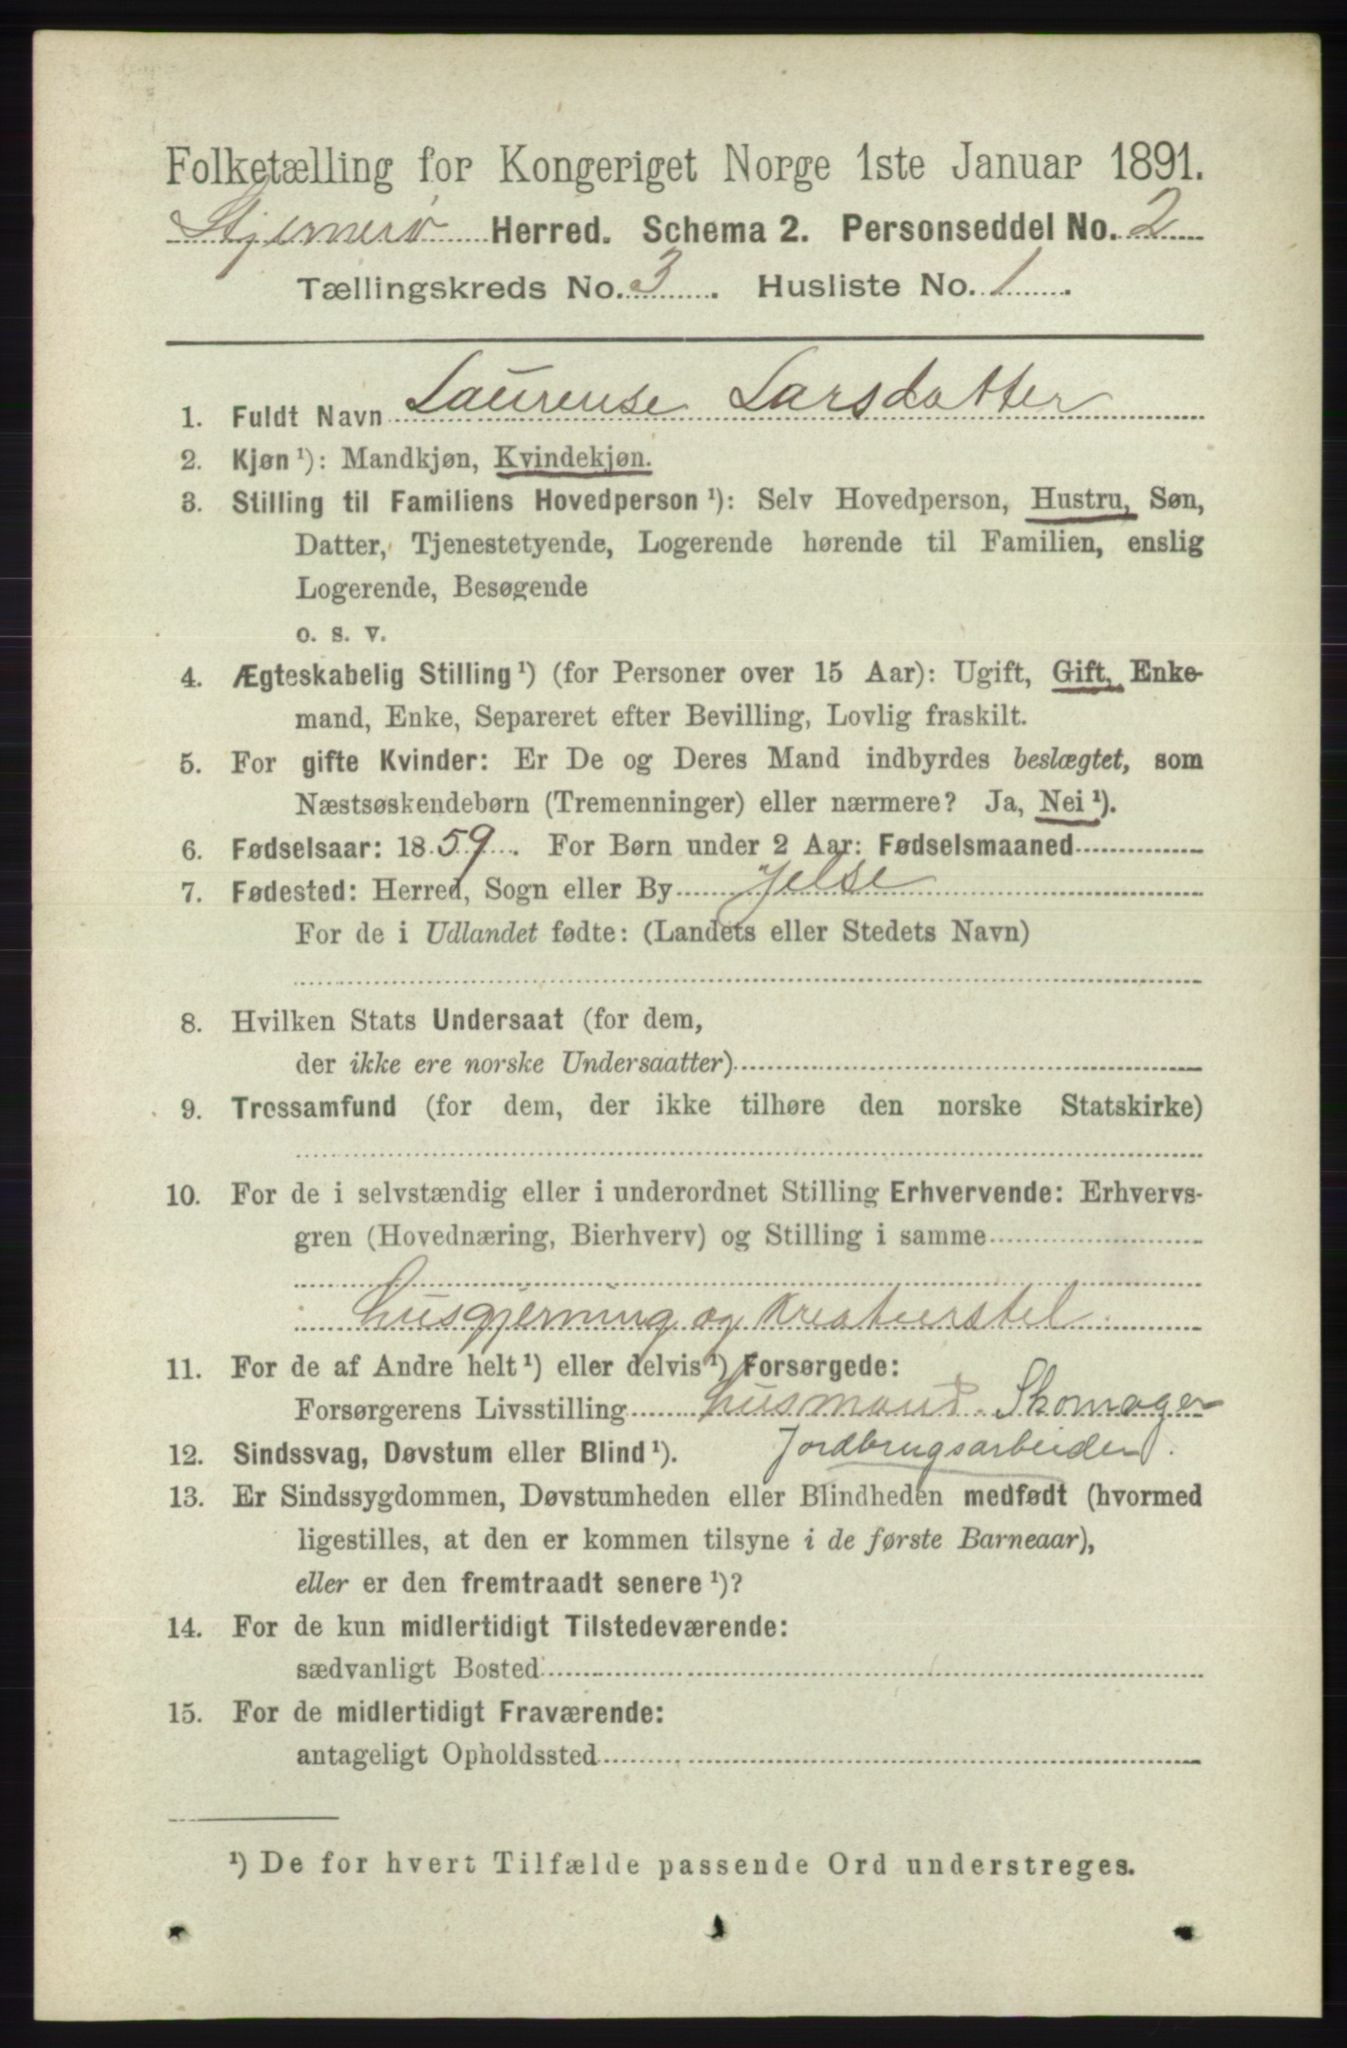 Folketælling for Kongeriget Norge 1ste Januar 1891.
Stjernerø Herred. Schema 2. Personseddel No. 2
Tællingskreds No. 3. Husliste No. 1.
1. Fuldt Navn Laurense Larsdatter
2. Kjøn ¹): Mandkjøn, Kvindekjøn.
3. Stilling til Familiens Hovedperson ¹): Selv Hovedperson, Hustru, Søn,
Datter, Tjenestetyende, Logerende hørende til Familien, enslig
Logerende, Besøgende
o. s. v.
4. Ægteskabelig Stilling ¹) (for Personer over 15 Aar): Ugift, Gift, Enke-
mand, Enke, Separeret efter Bevilling, Lovlig fraskilt.
5. For gifte Kvinder: Er De og Deres Mand indbyrdes beslægtet, som
Næstsøskendebørn (Tremenninger) eller nærmere? Ja, Nei ¹).
6. Fødselsaar: 1859. For Børn under 2 Aar: Fødselsmaaned
7. Fødested: Herred, Sogn eller By Jelse
For de i Udlandet fødte: (Landets eller Stedets Navn)
8. Hvilken Stats Undersaat (for dem,
der ikke ere norske Undersaatter)
9. Trossamfund (for dem, der ikke tilhøre den norske Statskirke)
10. For de i selvstændig eller i underordnet Stilling Erhvervende: Erhvervs-
gren (Hovednæring, Bierhverv) og Stilling i samme
Husgjerning og Kreaturstel
11. For de af Andre helt ¹) eller delvis ¹) Forsørgede:
Forsørgerens Livsstilling Husmand Skomager
Jordbrugsarbeider.
12. Sindssvag, Døvstum eller Blind ¹).
13. Er Sindssygdommen, Døvstumheden eller Blindheden medfødt (hvormed
ligestilles, at den er kommen tilsyne i de første Barneaar),
eller er den fremtraadt senere ¹)?
14. For de kun midlertidigt Tilstedeværende:
sædvanligt Bosted
15. For de midlertidigt Fraværende:
antageligt Opholdssted
¹) De for hvert Tilfælde passende Ord understreges.